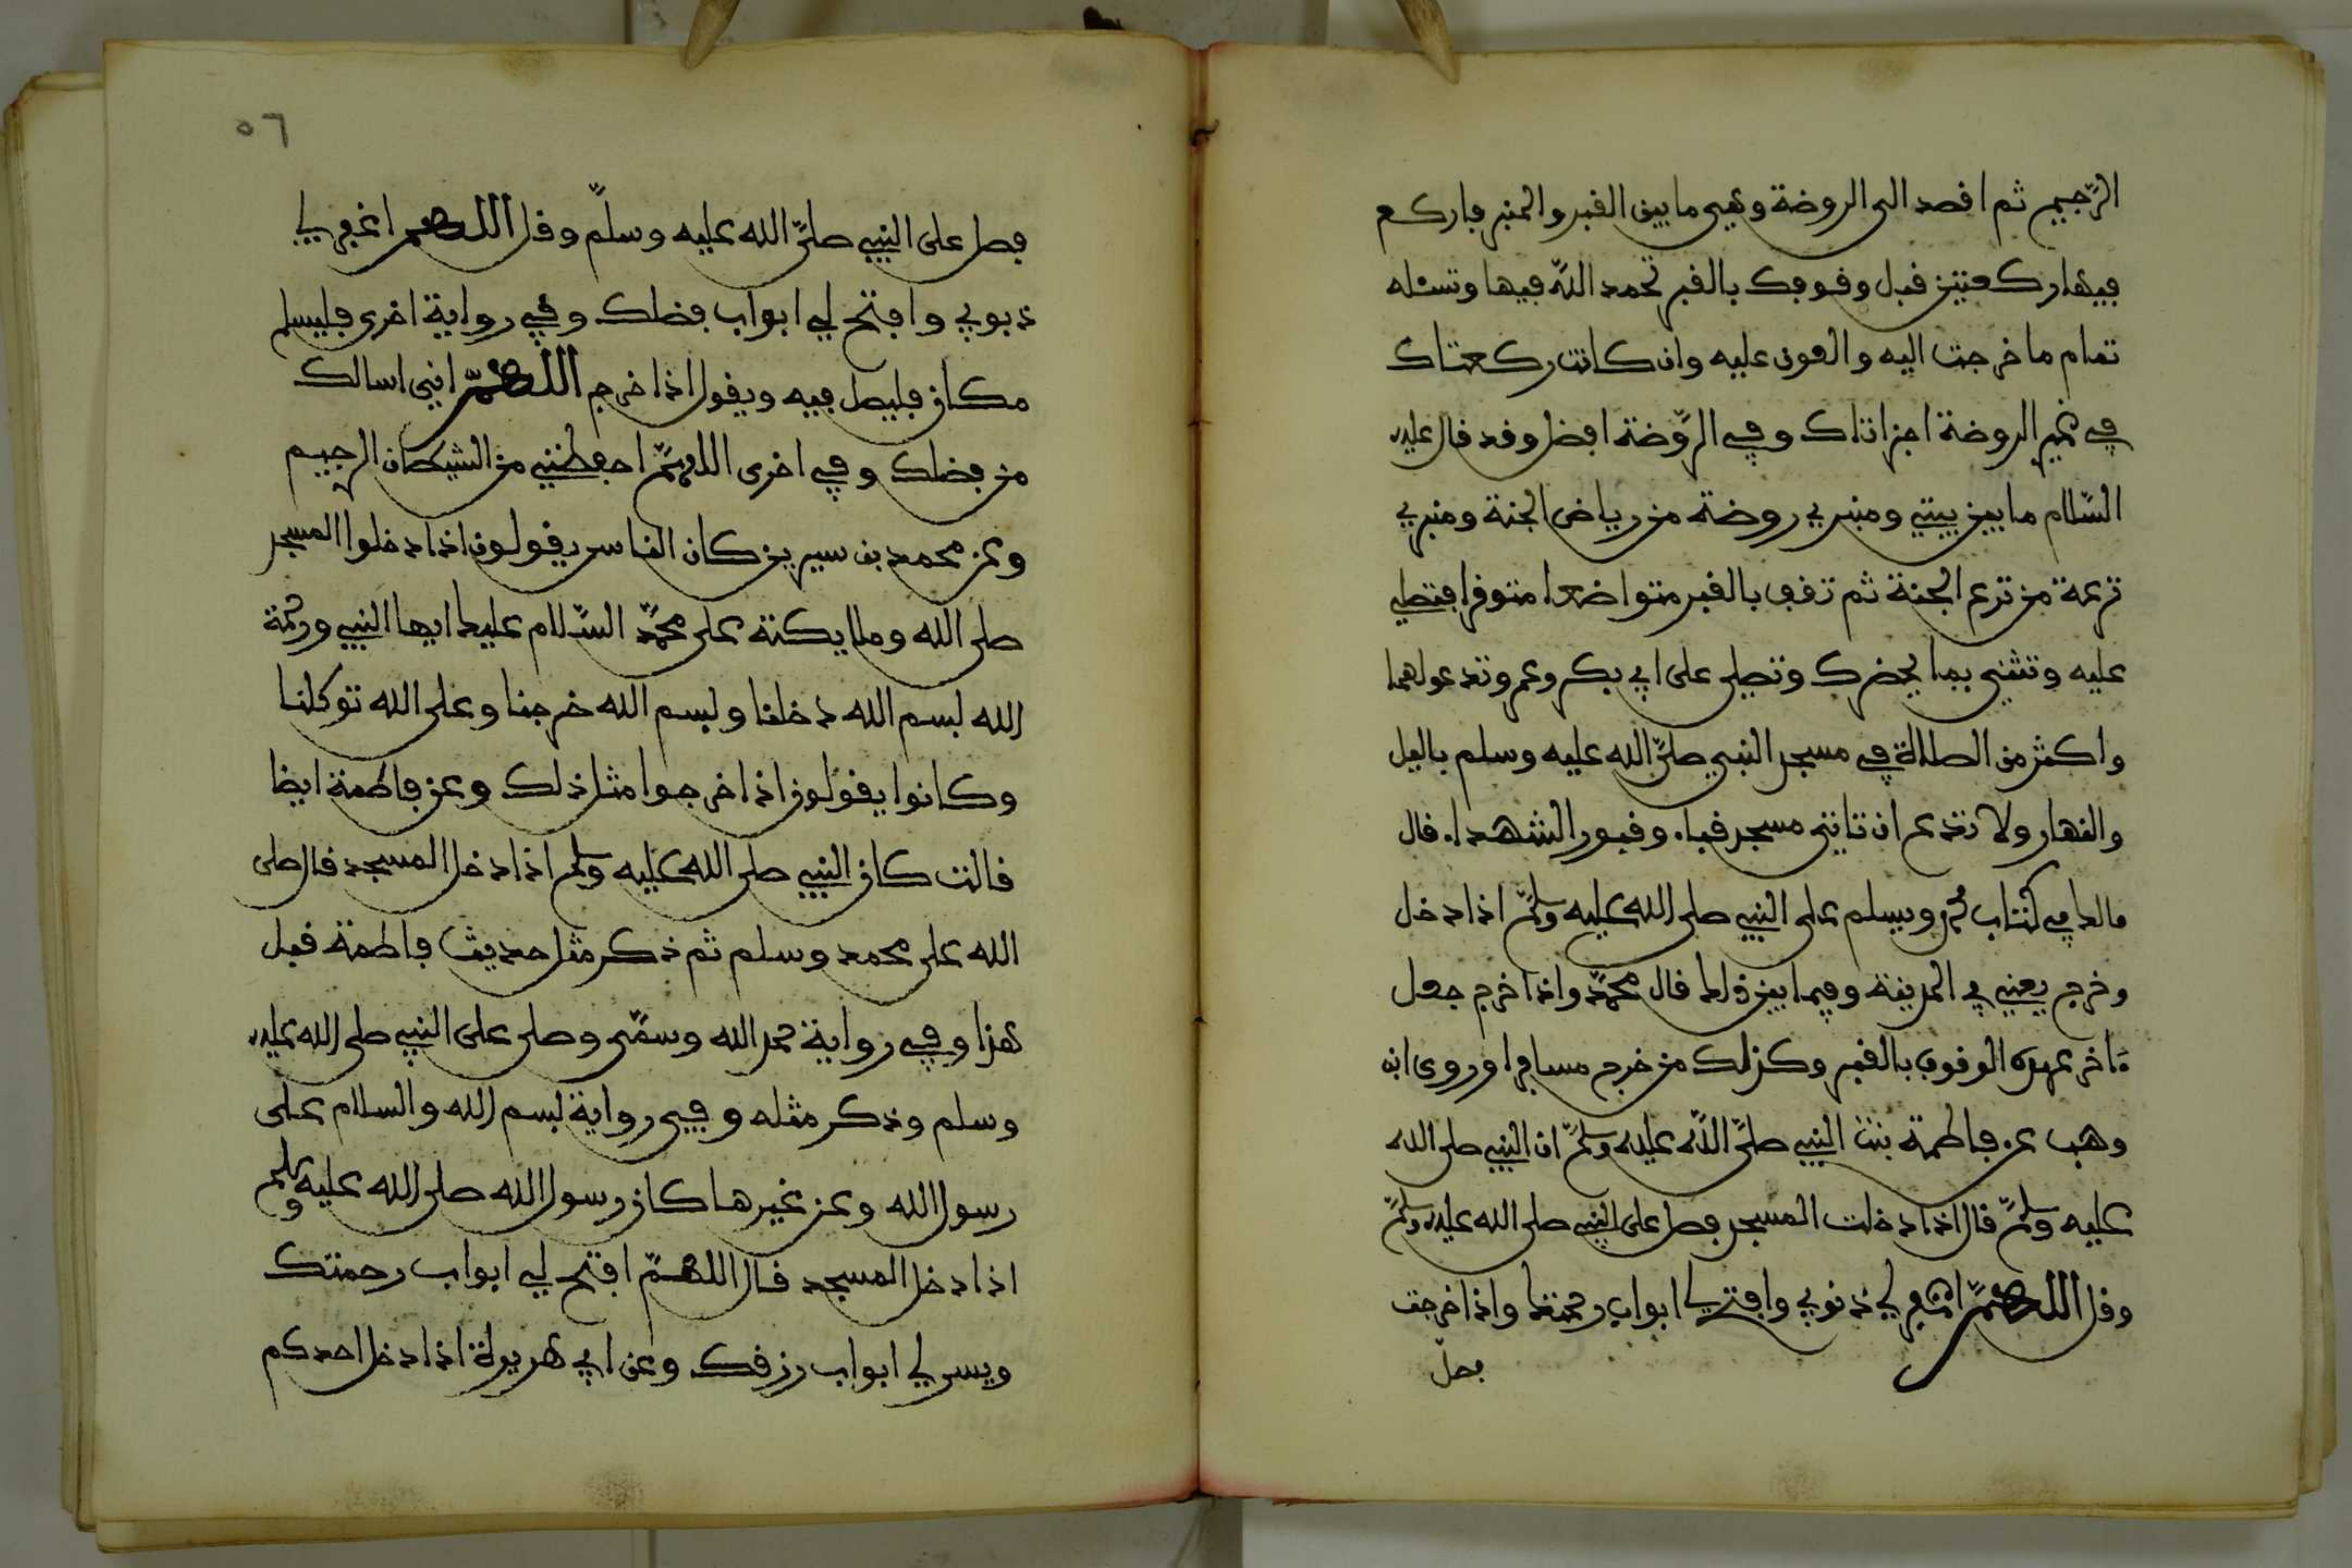 الرّجيم ثم اقصد الى الروضة وهي ما بين القبر والمنبر فاركع
فيها ركعتين قبل وقوفك بالقبر تحمد اللّه فيها وتسئله
تمام ما خرجت اليه والعون عليه وان كانت ركعتاك
في غير الروضة اجزاتاك وفي الرّوضة افضل وقد قال عليه
السّلام ما بين بيتي ومنبري روضة من رياض الجنة ومنبري
ترعة من ترع الجنة ثم تقف بالقبر متواضعا متوقرا فتصلي
عليه وتثني بما يحضرك وتصلى على ابي بكر وعمر وتدعو لهما
واكثر من الصلاة في مسجد النبي صلىّ الله عليه وسلم باليل
والنهار ولا تدع ان تاتي مسجد قباء وقبور الشهداء قال
مالك في كتاب محمد ويسلم على النبي صلى الله عليه وسلّم اذا دخل
وخرج يعني في المدينة وفيما بين ذلك قال محمّد واذا خرج جعل
ءاخر عهده الوقوف بالقبر وكذلك من خرج مسافرا وروى ابن
وهب عن فاطمة بنت النبي صلىّ اللّه عليه وسلّم ان النبي صلى الله
عليه وسلّم قال اذا دخلت المسجد فصل على النبي صلى الله عليه وسلّم
وقل اللهمّ اغفر لي ذنوبي وافتح لي ابواب رحمتك واذا خرجت
فصلّ
٥٦
فصل على النبي صلىّ الله عليه وسلّم وقل اللهم اغفر لي
ذنوبي وافتح لي ابواب فضلك وفي رواية اخرى فليسلم
مكان فليصل فيه ويقول اذا خرج اللهمّ اني اسالك
من فضلك وفي اخرى اللهمّ احفظني من الشيطان الرجيم
وعن محمد بن سيرين كان الناس يقولون اذا دخلوا المسجد
صلى الله وملايكته على محمّد السّلام عليك ايها النبي ورحمة
الله بسم الله دخلنا وبسم الله خرجنا وعلى الله توكلنا
وكانوا يقولون اذا خرجوا مثل ذلك وعن فاطمة ايضا
قالت كان النبي صلى الله عليه وسلم اذا دخل المسجد قال صلى
الله على محمد وسلم ثم ذكر مثل حديث فاطمة قبل
هذا وفي رواية حمد الله وسمّى وصلى على النبي صلى الله عليه
وسلم وذكر مثله وفي رواية بسم الله والسلام على
رسول الله وعن غيرها كان رسول الله صلى الله عليه وسلم
اذا دخل المسجد قال اللهمّ افتح لي ابواب رحمتك
ويسر لي ابواب رزقك وعن ابي هريرة اذا دخل احدكم